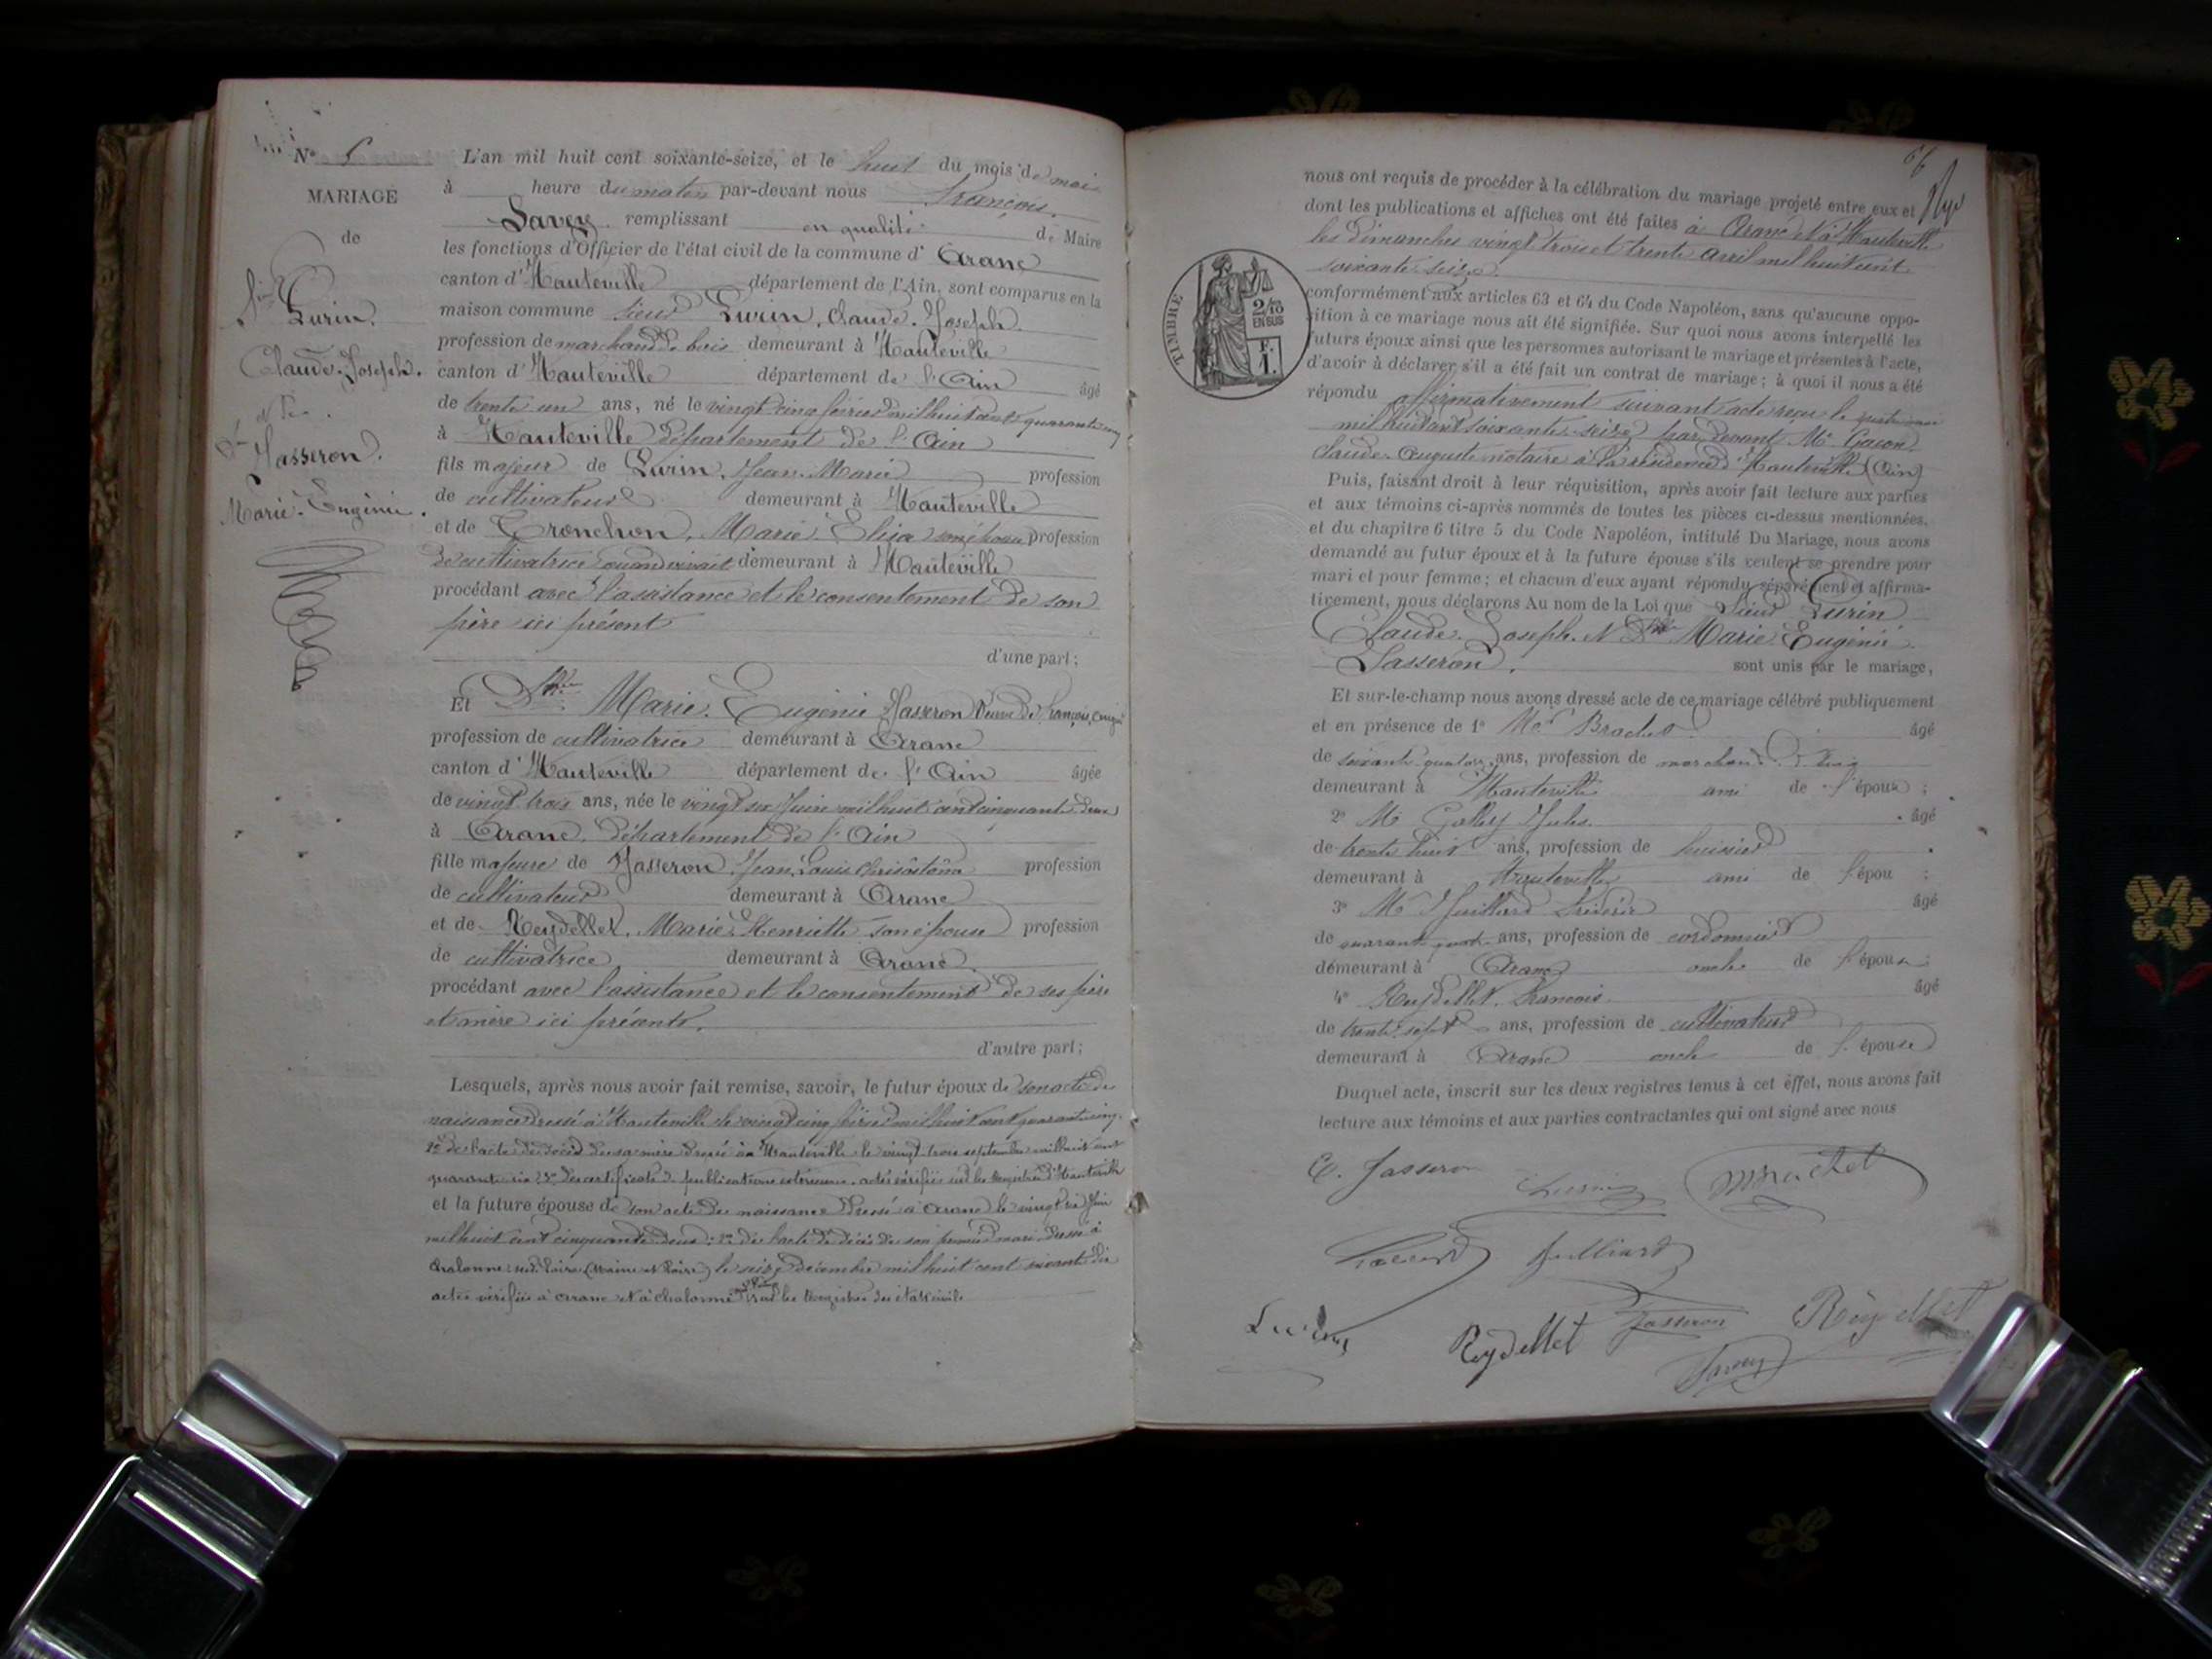 N° 5
MARIAGE
de
Lurin.
Claude-Joseph.
Jasseron.
Marie-Eugénie.
L'an mil huit cent soixante-seize, et le huit du mois de mai
à heure du matin par-devant nous François
Savey remplissant en qualité de Maire
les fonctions d'Officier de l'état civil de la commune d' Aranc
canton d' Hauteville département de l'Ain, sont comparus en la
maison commune sieur Lurin, Claude-Joseph
profession de marchand de bois demeurant à Hauteville
canton d' Hauteville département de l'Ain âgé
de trente un ans, né le vingt cinq février mil huit cent quarante cinq
à Hauteville département de l'Ain
fils majeur de Lurin, Jean-Marie profession
de cultivateur demeurant à Hauteville
et de Tronchon, Marie-Elisa son épouse profession
de cultivatrice quand vivait demeurant à Hauteville
procédant avec l'assistance et le consentement de son
père ici présent
d'une part;
Et Dlle Marie-Eugénie Jasseron veuve de François
profession de cultivatrice demeurant à Aranc
canton d' Hauteville département de l'Ain âgée
de vingt trois ans, née le vingt six Juin mil huit cent cinquante deux
à Aranc, Département de l'Ain
fille majeure de Jasseron, Jean Louis Chrisostôme profession
de cultivateur demeurant à Aranc
et de Reydellet, Marie-Henriette son épouse profession
de cultivatrice demeurant à Aranc
procédant avec l'assistance et le consentement de ses père
et mère ici présents.
d'autre part;
Lesquels, après nous avoir fait remise, savoir, le futur époux de son acte de
naissance dressé à Hauteville le vingt cinq février mil huit cent quarante cinq.
2° de l'acte de décès de sa mère dressé à Hauteville le vingt-trois septembre mil huit cent
quarante six; 3° des certificats de publications extérieures, actes vérifiés sur les registres d'Hauteville
et la future épouse de son acte de naissance dressé à Aranc le vingt six Juin
mil huit cent cinquante deux; 2° de l'acte de décès de son premier mari dressé à
Chalonne-sur-Loire (Maine et Loire) le seize décembre mil huit cent soixante dix
actes vérifiés à Aranc et à Chalonne sur les Registres de l'état civil
nous ont requis de procéder à la célébration du mariage projeté entre eux et
dont les publications et affiches ont été faites à Aranc et à Hauteville
les Dimanches vingt trois et trente avril mil huit cent
soixante-seize.
conformément aux articles 63 et 64 du Code Napoléon, sans qu'aucune oppo-
sition à ce mariage nous ait été signifiée. Sur quoi nous avons interpellé les
futurs époux ainsi que les personnes autorisant le mariage et présentes à l'acte,
d'avoir à déclarer s'il a été fait un contrat de mariage; à quoi il nous a été
répondu affirmativement suivant acte reçu le quatre mai
mil huit cent soixante-seize par devant Me Gacon,
Claude-Auguste notaire à la résidence d'Hauteville (Ain)
Puis, faisant droit à leur réquisition, après avoir fait lecture aux parties
et aux témoins ci-après nommés de toutes les pièces ci-dessus mentionnées,
et du chapitre 6 titre 5 du Code Napoléon, intitulé Du Mariage, nous avons
demandé au futur époux et à la future épouse s'ils veulent se prendre pour
mari et pour femme; et chacun d'eux ayant répondu séparément et affirma-
tivement, nous déclarons Au nom de la Loi que Sieur Lurin
Claude-Joseph. et Dlle Marie-Eugénie
Jasseron. sont unis par le mariage,
Et sur-le-champ nous avons dressé acte de ce mariage célébré publiquement
et en présence de 1° Brachet âgé
de soixante quatorze ans, profession de marchand de bois
demeurant à Hauteville ami de l'époux;
2° M Jules âgé
de trente huit ans, profession de huissier
demeurant à Hauteville ami de l'épou;
3° M Juillard âgé
de quarante ans, profession de cordonnier
demeurant à Aranc oncle de l'épou;
4° Reydellet, François âgé
de trente-sept ans, profession de cultivateur
demeurant à Aranc oncle de l'épouse
Duquel acte, inscrit sur les deux registres tenus à cet effet, nous avons fait
lecture aux témoins et aux parties contractantes qui ont signé avec nous
TIMBRE
2/10
EN SUS
F.
1.
E. Jasseron
Lurin
Brachet
Juilliard
Jasseron
Reydellet
Reydellet
Savey